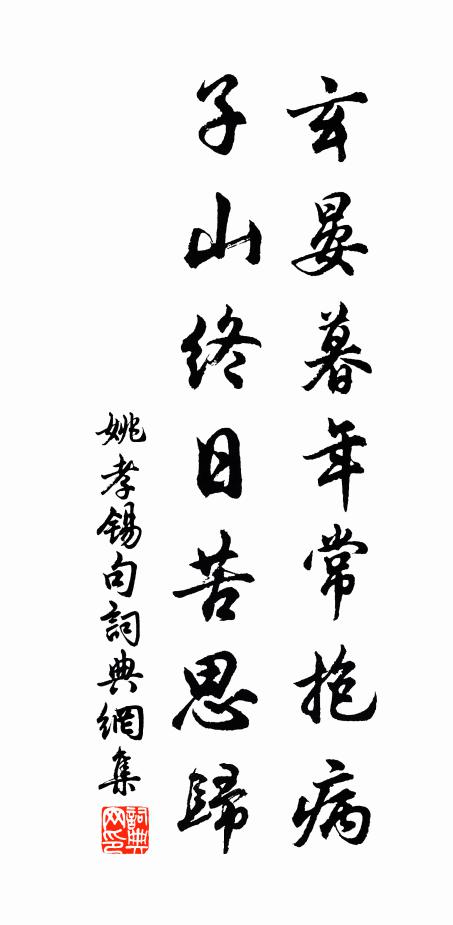 玄晏暮年常抱病
子山終日苦思歸
姚孝锡句詞典網集
詞典网印